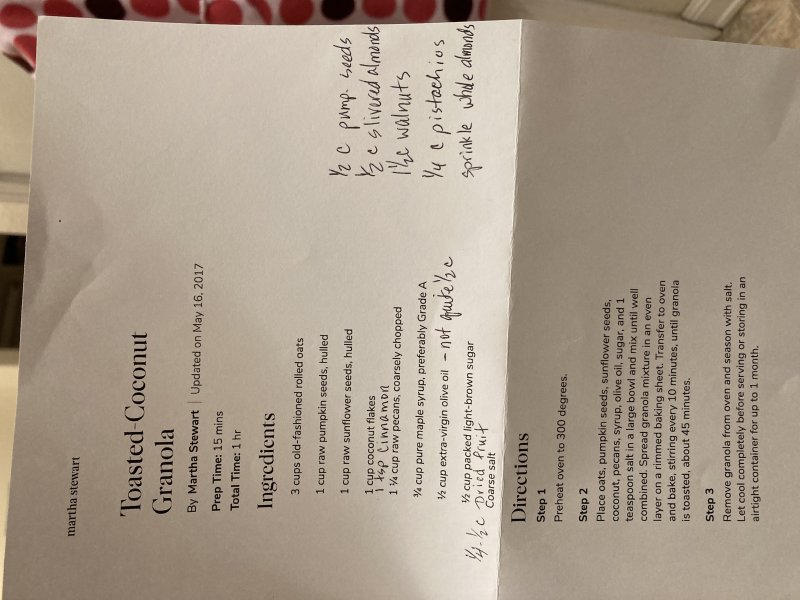 martha stewart
Toasted-Coconut
Granola
By Martha Stewart | Updated on May 16, 2017
Prep Time: 15 mins
Total Time: 1 hr
Ingredients
3 cups old-fashioned rolled oats
1 cup raw pumpkin seeds, hulled
1 cup raw sunflower seeds, hulled
1 cup coconut flakes
1 tsp Cinnamon
1 ¼ cup raw pecans, coarsely chopped
¾ cup pure maple syrup, preferably Grade A
½ cup extra-virgin olive oil - not quite ½ c
½ cup packed light-brown sugar
¼-½ c Dried fruit
Coarse salt
½ c pump. seeds
½ c slivered almonds
1½c walnuts
¼ c pistachios
sprinkle whole almonds
Directions
Step 1
Preheat oven to 300 degrees.
Step 2
Place oats, pumpkin seeds, sunflower seeds,
coconut, pecans, syrup, olive oil, sugar, and 1
teaspoon salt in a large bowl and mix until well
combined. Spread granola mixture in an even
layer on a rimmed baking sheet. Transfer to oven
and bake, stirring every 10 minutes, until granola
is toasted, about 45 minutes.
Step 3
Remove granola from oven and season with salt.
Let cool completely before serving or storing in an
airtight container for up to 1 month.